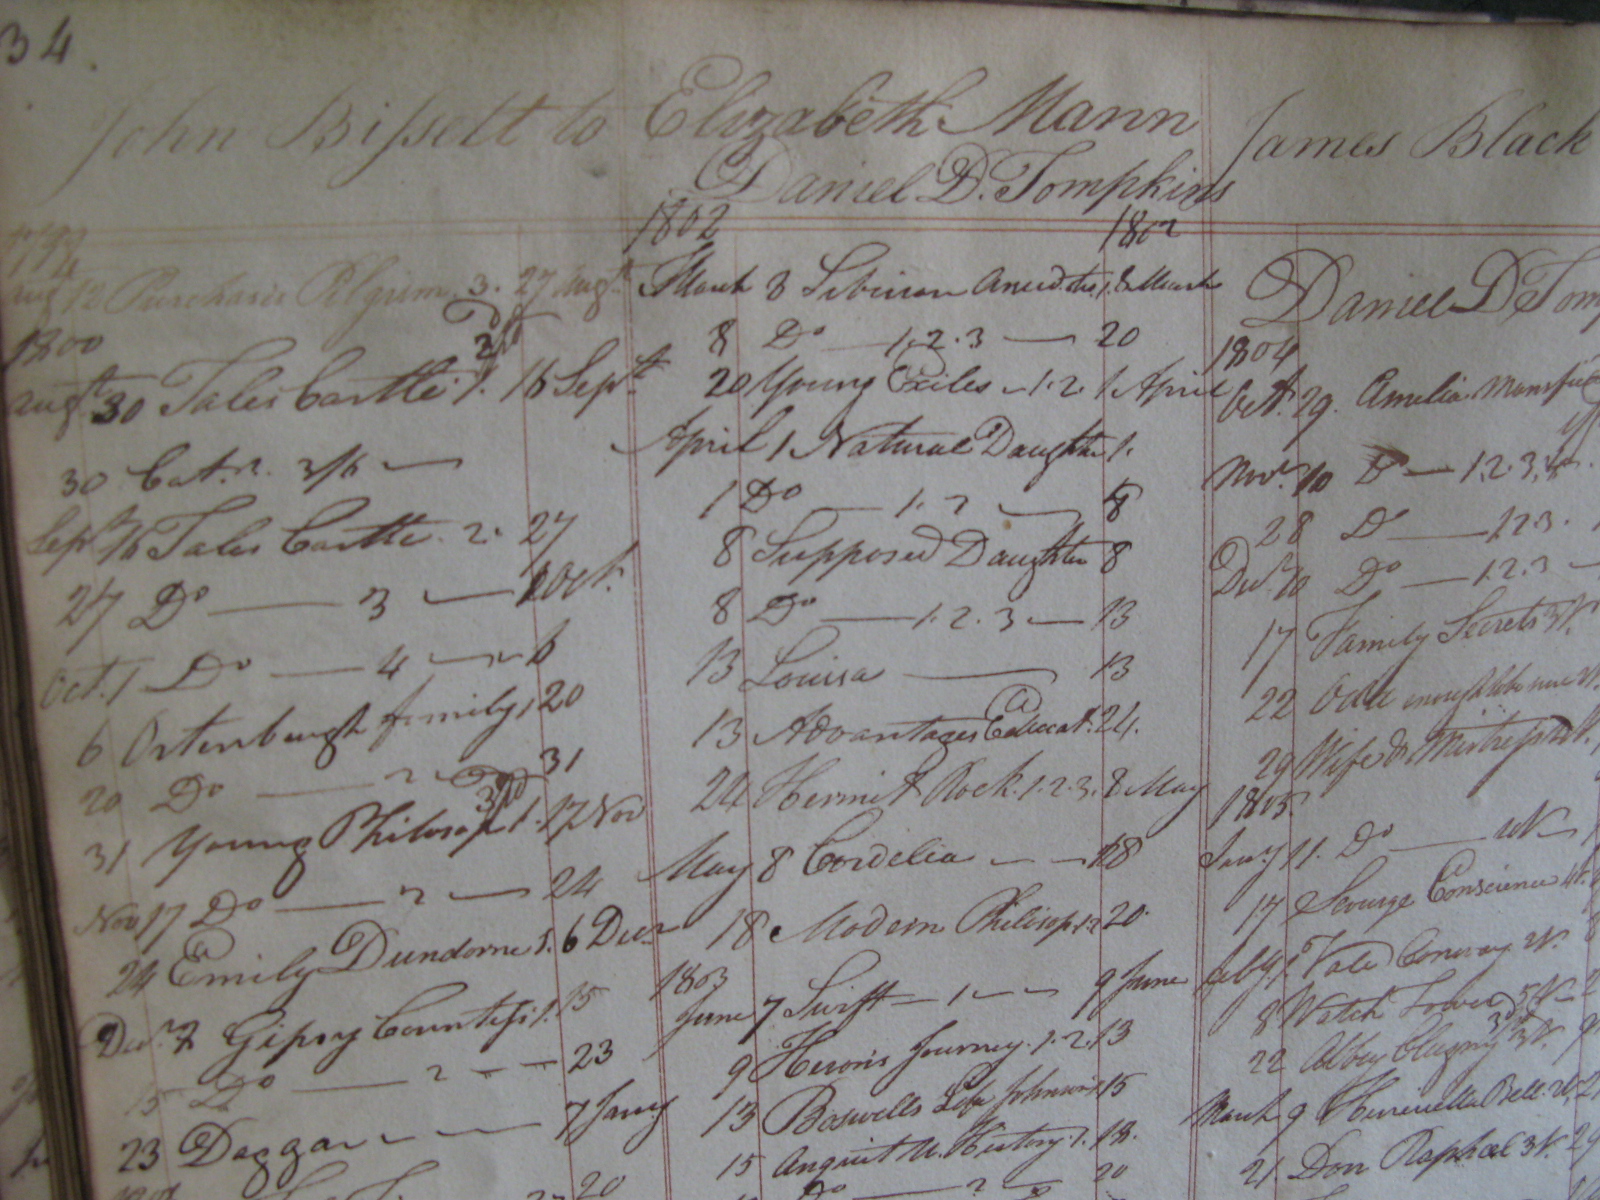 34.
John Bissett to Elizabeth Mann
Daniel D. Tompkins
Aug 12 Purchase's Pilgrim 3. 27 Augt
1800
Augt 30 Tales Castle 1. 16 Sept
30 Cat. 3/6 —
Sept 16 Tales Castle. 2. 27
27 Do — 3 — 1 Oct.
Oct. 1 Do — 4 — 6
6 Ortenburgh family 1 20
20 Do — 2 31
31 Young Philosop 1. 17 Nov
Nov 17 Do — 2 — 24
24 Emily Dundorne 1. 6 Decr
Decr. 7 Gipsy Countess 1. 15
15 Do — 2 - - 23
23 Daggar - - — 7 Jany
20
1802 1802
March 8 Siberian Anecdotes 1. 8 March
8 Do — 1.2.3 — 20
20 Young Exiles - 1.2 1 April
April 1 Natural Daughter 1.
1 Do — 1.2 — 8
8 Supposed Daughter 8
8 Do — 1.2.3 — 13
13 Louisa — 13
13 Advantages Educat. 24.
24 Hermit Rock. 1.2.3. 8 May
May 8 Cordelia — — 18
18 Modern Philosop. 1.2 20.
1803
June 7 Swift — 1 — — 9 June
9 Herons Journey. 1.2. 13
13 Boswells Life Johnson 15
15 Anquit U. History 1. 18.
Do — 2 — 20
James Black
Daniel D Tom
1804
Oct. 29. Amelia Mansfie
Nov. 10 Do — 1.2.3.
28 Do — 1 2 3.
Decr. 10 Do — 1.2.3 —
17 Family Secrets 3 V.
22 Odd enough to be sure 2 V.
29 Wife & Mistress
1805.
Jany 11. Do —
17 Scourge Conscience 4 V.
Feby 1 Vale Conway 2 V.
8 Watch Tower 5 V
22 Abbey Clugny 3 V.
March 9 Henrietta Bell.
21. Don Raphael 3 V. 29